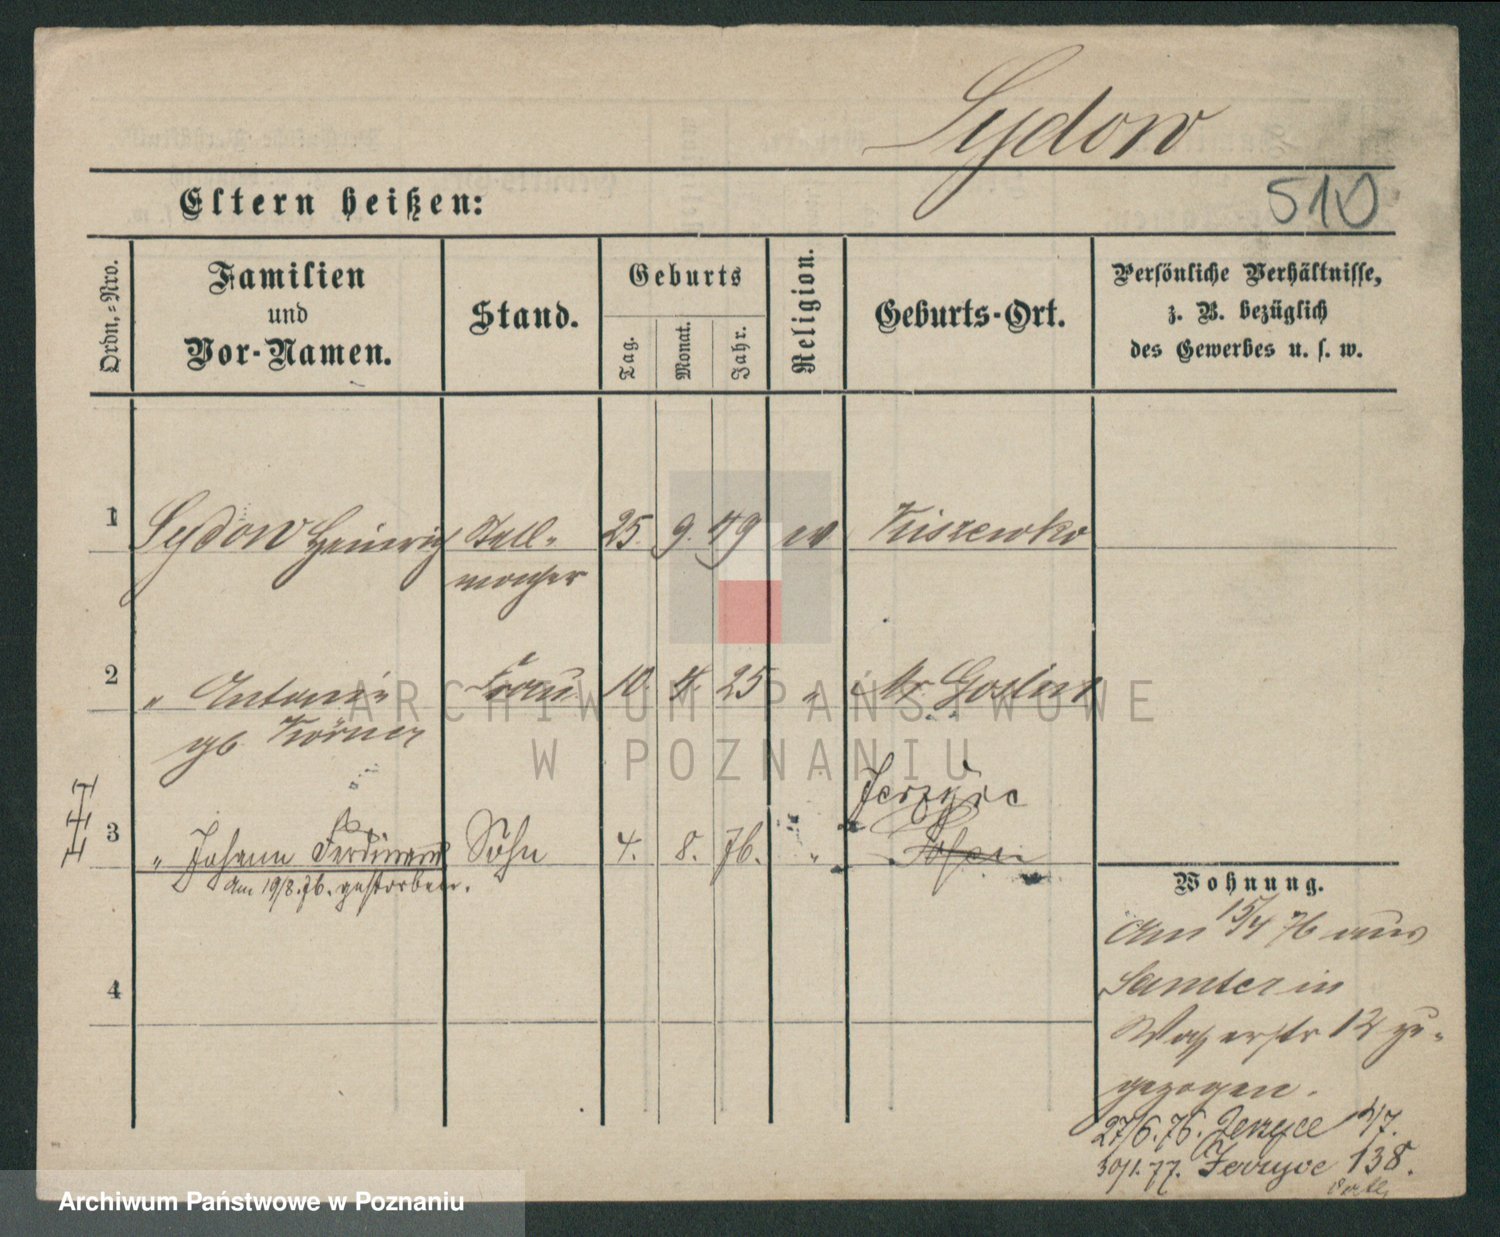 Sydow
510
Eltern heißen:
Ordn.-Nro.
Familien
und
Vor-Namen.
Stand.
Geburts
Tag.
Monat.
Jahr.
Religion.
Geburts-Ort.
Persönliche Verhältnisse,
z. B. bezüglich
des Gewerbes u. s. w.
1 Sydow Heinrich Stell- 25. 9. 49 ev Kiszewko
macher
2 " Antonie Frau 10. 25 " Mr. Goslin
gb Körner
Jerzyce
3 " Johann Ferdinand Sohn 4. 8. 76. " Posen
Am 19/8. 76. gestorben.
4
Wohnung.
Am 15/4 76 aus
Samter in
Wasserstr 12 zu-
gezogen.
27/6. 76. Jerzyce 147.
30/1. 77. Jerzyce 138.
ARCHIWUM PAŃSTWOWE
W POZNANIU
Archiwum Państwowe w Poznaniu